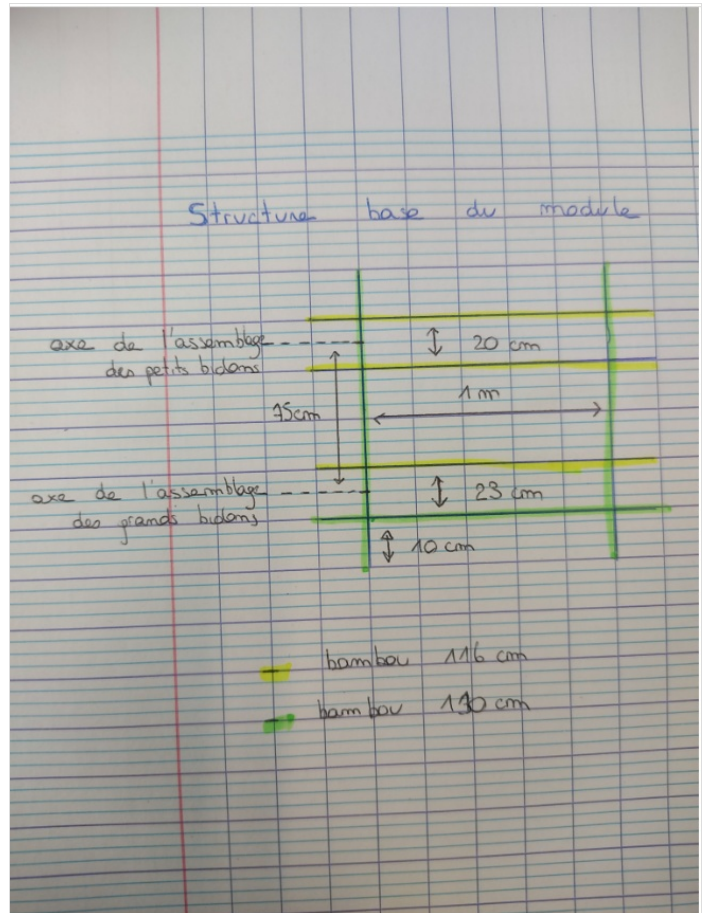 Structure base du module
axe de l'assemblage
des petits bidons
20 cm
1 m
75cm
axe de l'assemblage
des grands bidons
23 cm
10 cm
bambou 116 cm
bambou 130 cm